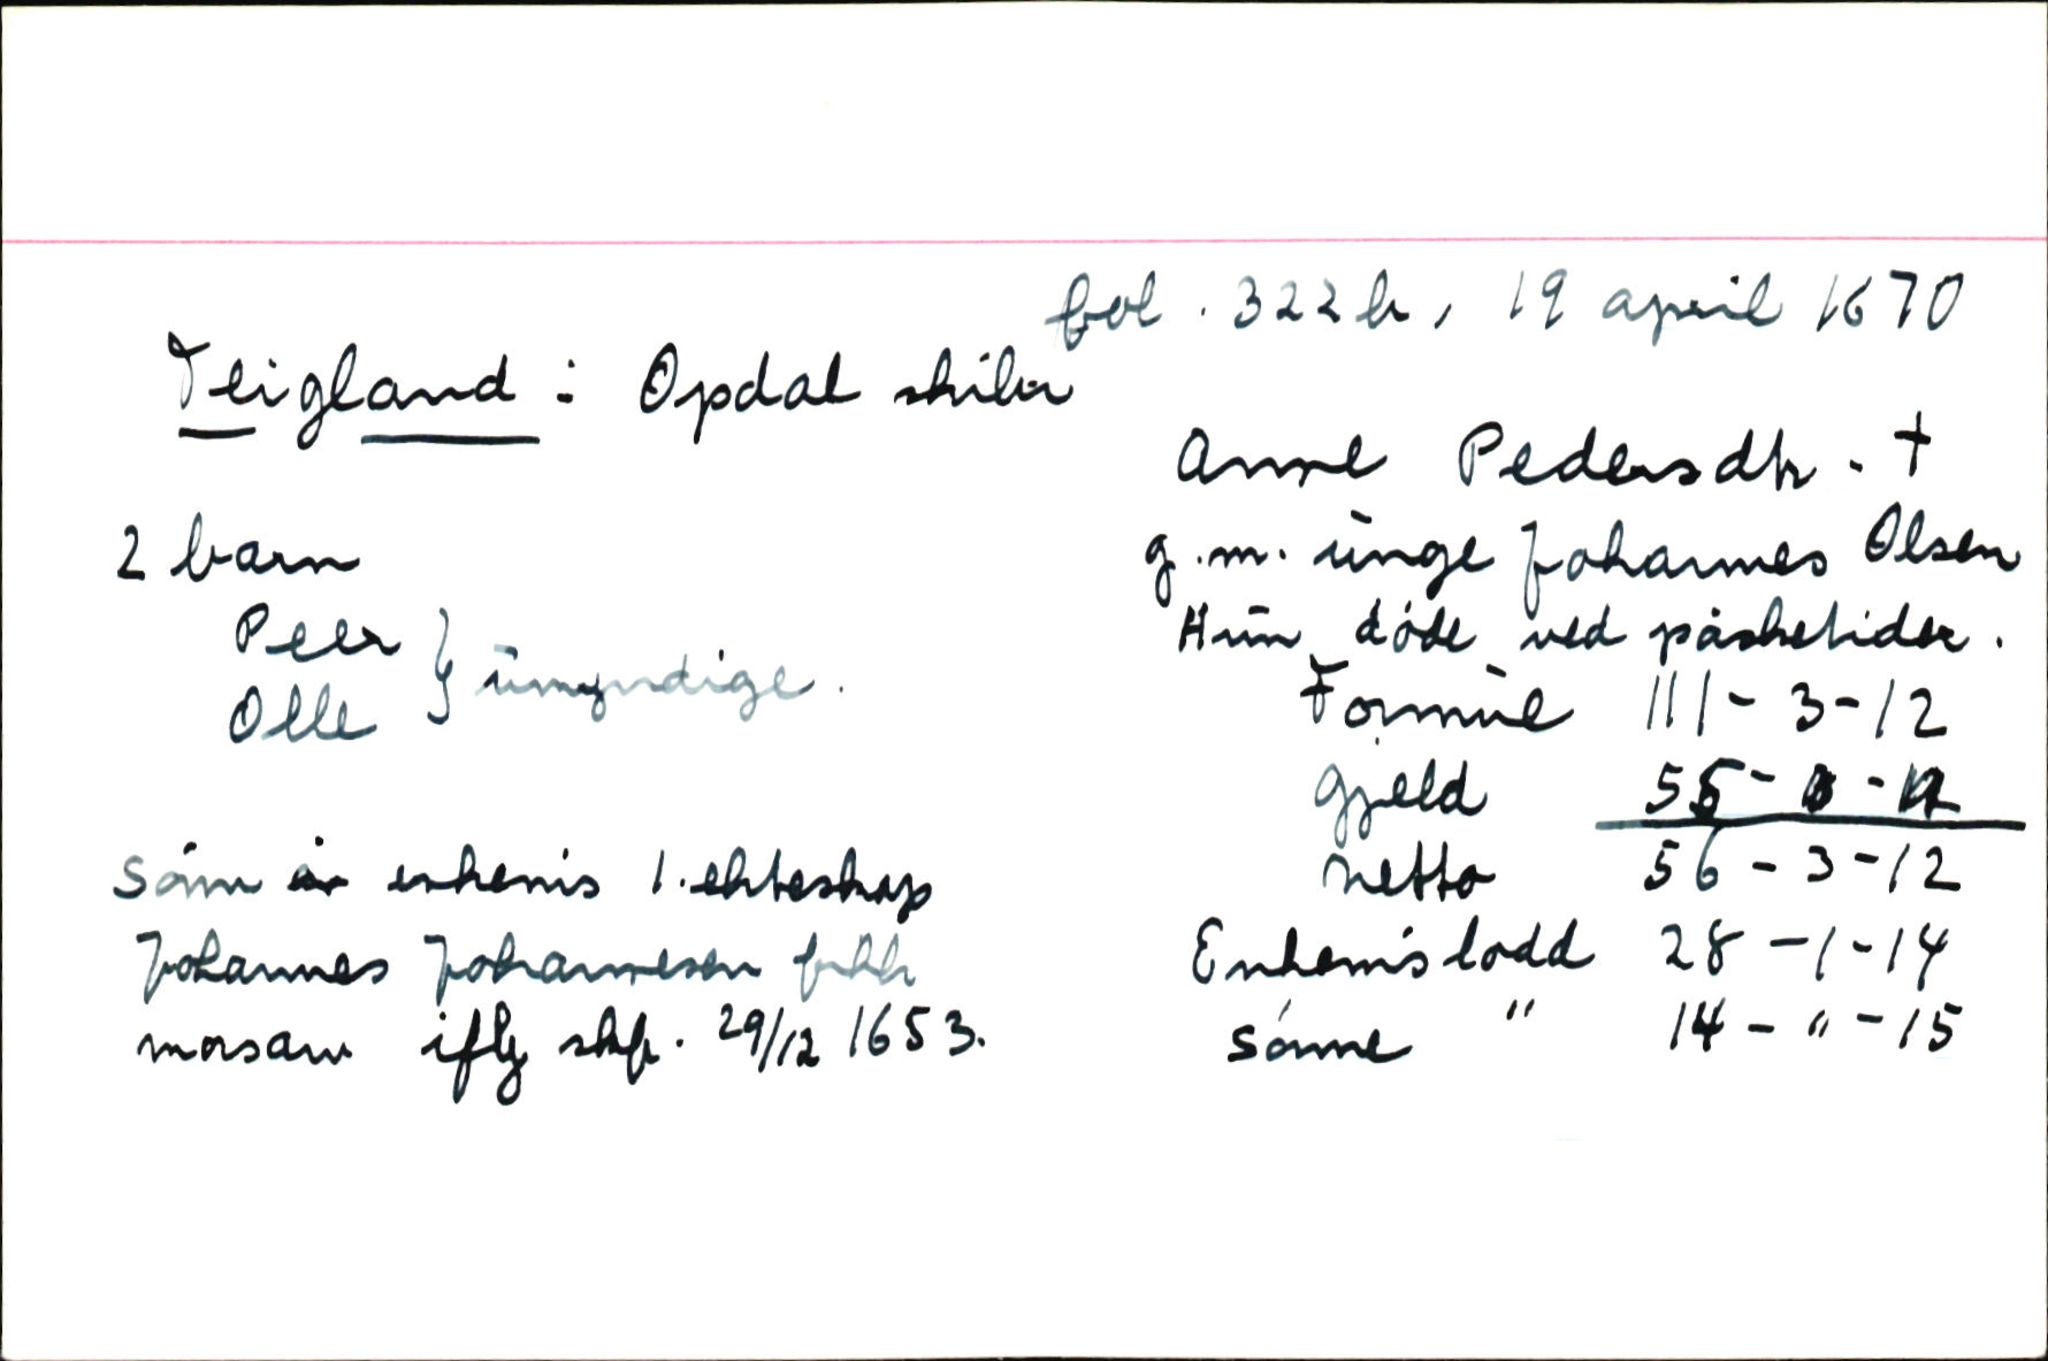 fol. 322b, 19 april 1670
Teigland: Opdal skibr
Anne Pedersdtr. †
g.m. unge Johannes Olsen
Hun døde ved påsketider.
2 barn
Peer
Olle } umyndige.
Formue 111-3-12
Gjeld 55-
Netto 56-3-12
Enkem's lodd 28-1-14
sønne " 14-"-15
Sønn enkem's 1. ekteskap
Johannes Johannesen
morsarv iflg skf. 29/12 1653.